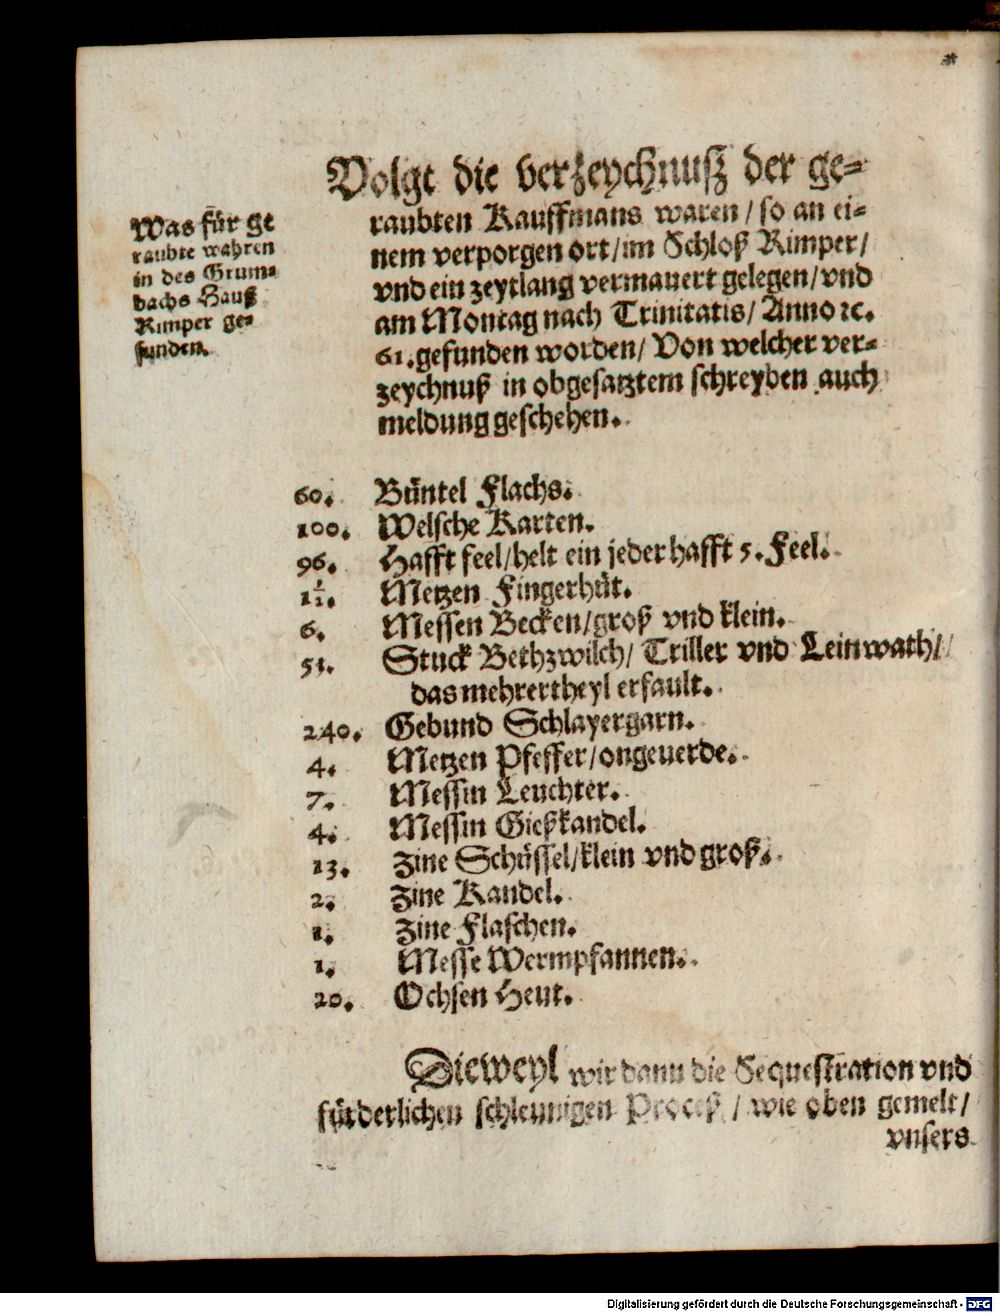 Volgt die verzeychnuß der ge=
raubten Kauffmans waren / so an ei=
nem verporgen ort / im Schloß Rimper /
vnd ein zeytlang vermauert gelegen / vnd
am Montag nach Trinitatis / Anno ꝛc.
61. gefunden worden / Von welcher ver=
zeychnuß in obgesatztem schreyben auch
meldung geschehen.
Was für ge
raubte wahren
in des Grum=
bachs Hauß
Rimper ge=
funden.
60. Büntel Flachs.
100. Welsche Karten.
96. Hafft feel / helt ein jeder hafft 5. Feel.
1½. Metzen Fingerhüt.
6. Messen Becken / groß vnd klein.
51. Stuck Bethzwilch / Triller vnd Leinwath /
das mehrertheyl erfault.
240. Gebund Schlayergarn.
4. Metzen Pfeffer / ongeuerde.
7. Messin Leuchter.
4. Messin Gießkandel.
13. Zine Schüssel / klein vnd groß.
2. Zine Kandel.
1. Zine Flaschen.
1. Messe Wermpfannen.
20. Ochsen Heut.
Dieweyl wir dann die Sequestration vnd
fürderlichen schleunigen Proceß / wie oben gemelt /
vnsers
Digitalisierung gefördert durch die Deutsche Forschungsgemeinschaft - DFG